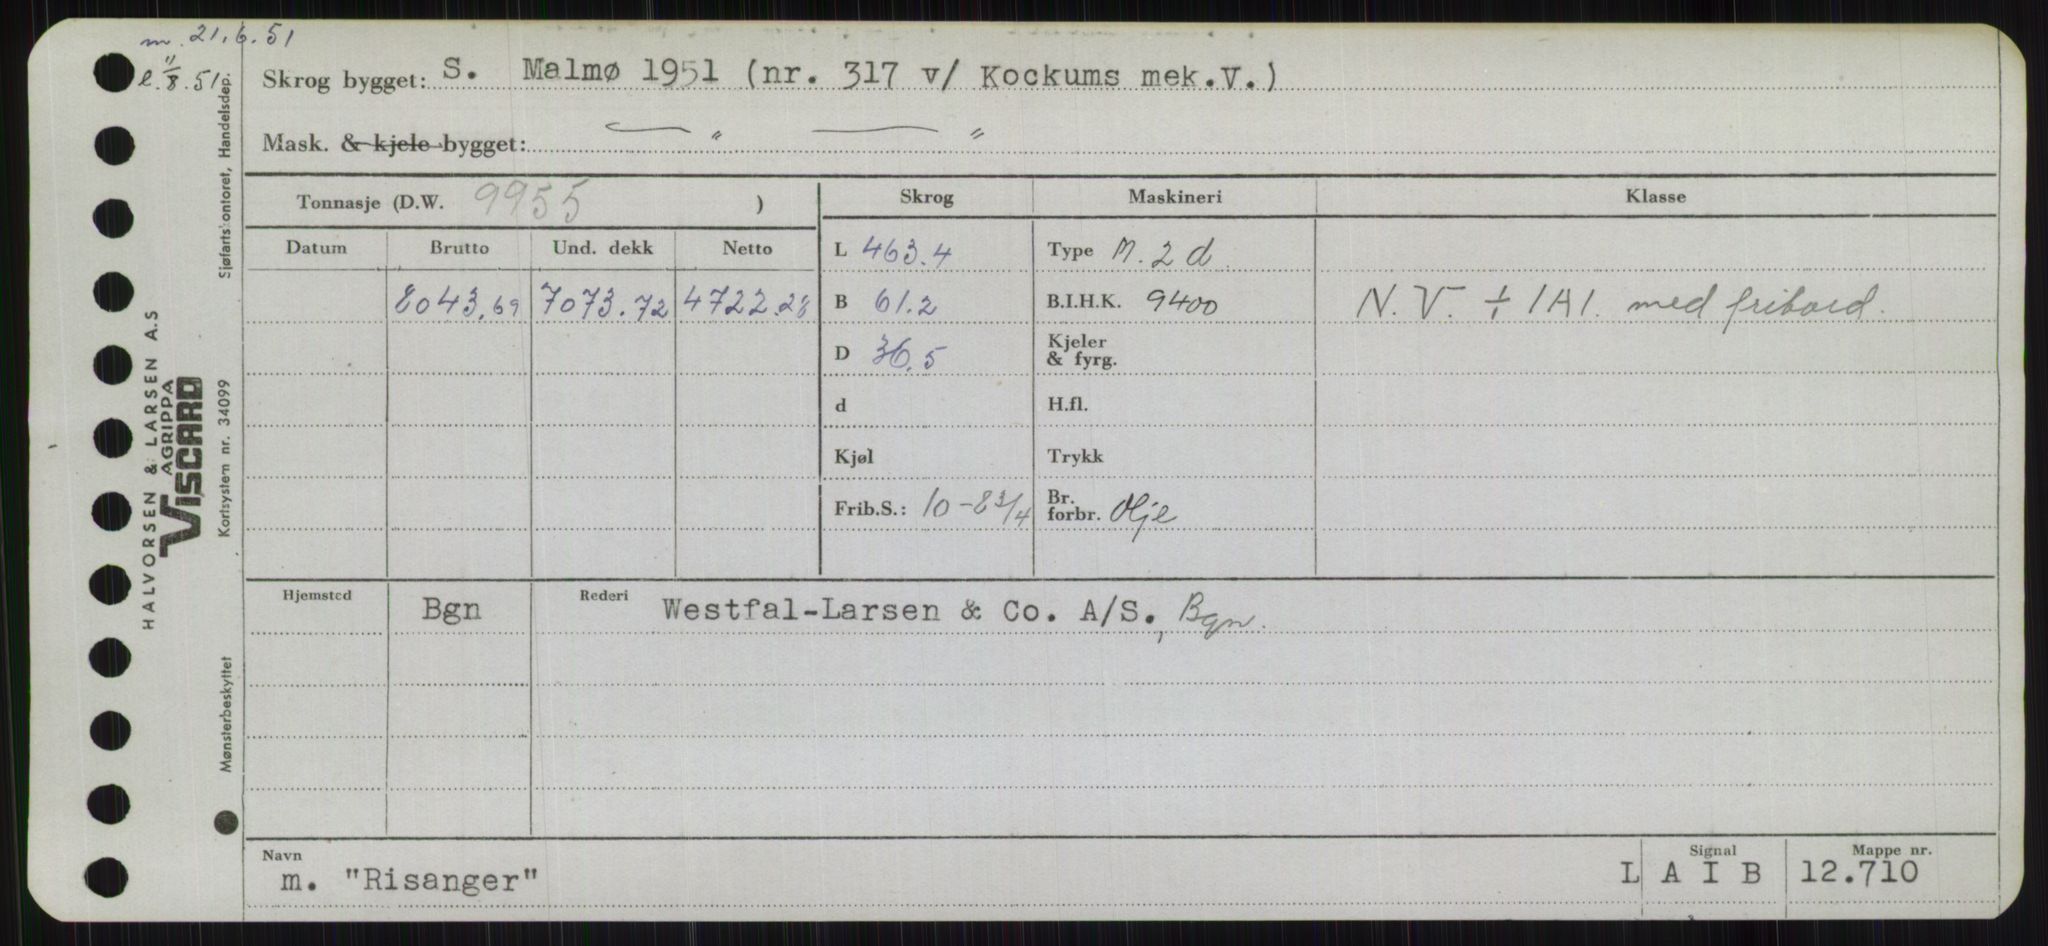 m. 21.6.51
l. 11/8.51
Skrog bygget: S. Malmø 1951 (nr. 317 v/ Kockums mek.V.)
Mask. & kjele bygget: — " — "
Tonnasje (D.W. 9955 )
Skrog Maskineri Klasse
Datum Brutto Und. dekk Netto
L 463.4 Type M. 2 d.
8043.69 7073.72 4722.28 B 61.2 B.I.H.K. 9400 N.V. ÷ 1A1. med fribord.
D 36.5 Kjeler & fyrg.
d H.fl.
Kjøl Trykk
Frib.S.: 10-8 3/4 Br. forbr. Olje
Hjemsted Bgn Rederi Westfal-Larsen & Co. A/S., Bgn.
Navn Signal Mappe nr.
m. "Risanger" L A I B 12.710
HALVORSEN & LARSEN A.S
AGRIPPA
VISCARD
Mønsterbeskyttet Kortsystem nr. 34099 Sjøfartskontoret, Handelsdep.